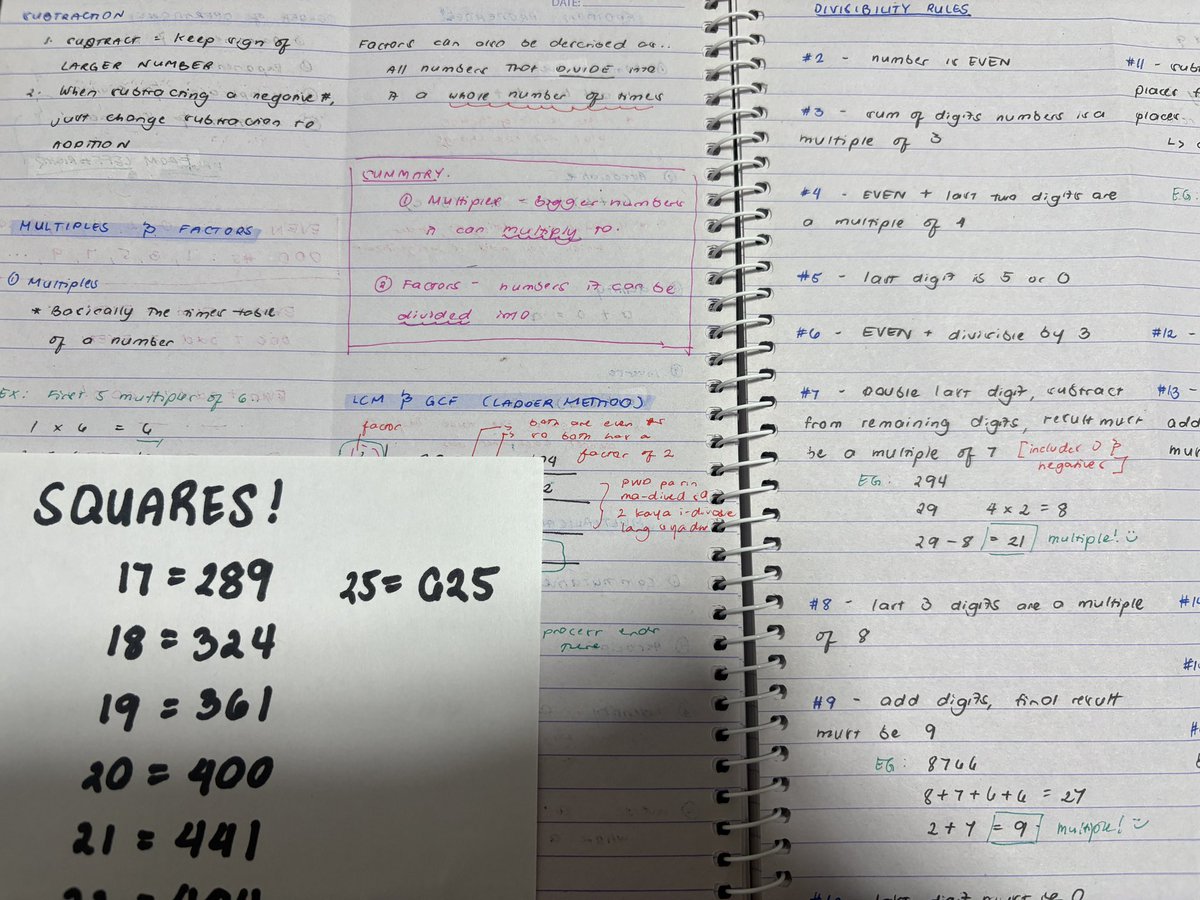 SUBTRACTION
1. SUBTRACT = Keep sign of
LARGER NUMBER
2. When subtracting a negative #,
just change subtraction to
ADDITION
MULTIPLES & FACTORS
① Multiples
* Basically the times table
of a number
EX: First 5 multiples of 6:
1 x 6 = 6
DATE:
Factors can also be described as..
All numbers THAT DIVIDE into
it a whole number of times
SUMMARY.
① Multiples - bigger numbers
it can multiply to.
② Factors - numbers it can be
divided into
LCM & GCF (LADDER METHOD)
factor
both are even #s
so both has a
factor of 2
pwd pa rin
ma-divide sa
2 kaya i-divide
lang
process ends
here
SQUARES!
17 = 289
18 = 324
19 = 361
20 = 400
21 = 441
25 = 625
DIVISIBILITY RULES
#2 - number is EVEN
#3 - sum of digits numbers is a
multiple of 3
#4 - EVEN + last two digits are
a multiple of 4
#5 - last digit is 5 or 0
#6 - EVEN + divisible by 3
#7 - Double last digit, subtract
from remaining digits, result must
be a multiple of 7 [includes 0 &
negatives]
EG: 294
29 4 x 2 = 8
29 - 8 = 21 multiple!
#8 - last 3 digits are a multiple
of 8
#9 - add digits, final result
must be 9
EG: 8766
8+7+6+6 = 27
2 + 7 = 9 multiple!
#11 -
places
places
EG:
#12 -
#13 -
add